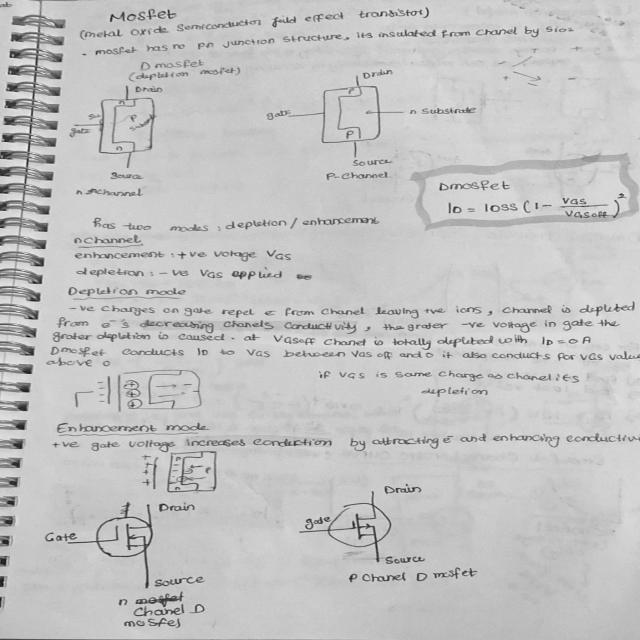 Mosfet
(metal oxide Semiconductor field effect transistor)
- mosfet has no pn junction structure, its insulated from chanel by SiO2
D mosfet
(depletion mosfet)
Drain
n
P
gate
n
source
n channel
Drain
P
gate
n substrate
P
Source
P-channel
Dmosfet
ID = IDSS (1 - VGS / VGSoff)²
has two modes : depletion / enhancement
n channel
enhancement : +ve votage VGS
depletion : -ve VGS applied
Depletion mode
-ve charges on gate repel e from chanel leaving +ve ions, channel is depleted
from e⁻s decreasing chanels conductivity, the grater -ve voltage in gate the
grater depletion is caused. at VGSoff chanel is totally depleted with ID = 0 A
Dmosfet conducts ID to VGS between VGS off and 0 it also conducts for VGS value
above 0
if VGS is same charge as chanel its
depletion
Enhancement mode
+ve gate voltage increases conduction by attracting e⁻ and enhancing conductive
Drain
Gate
Source
n
Chanel D
mosfet
Drain
gate
Source
P Chanel D mosfet